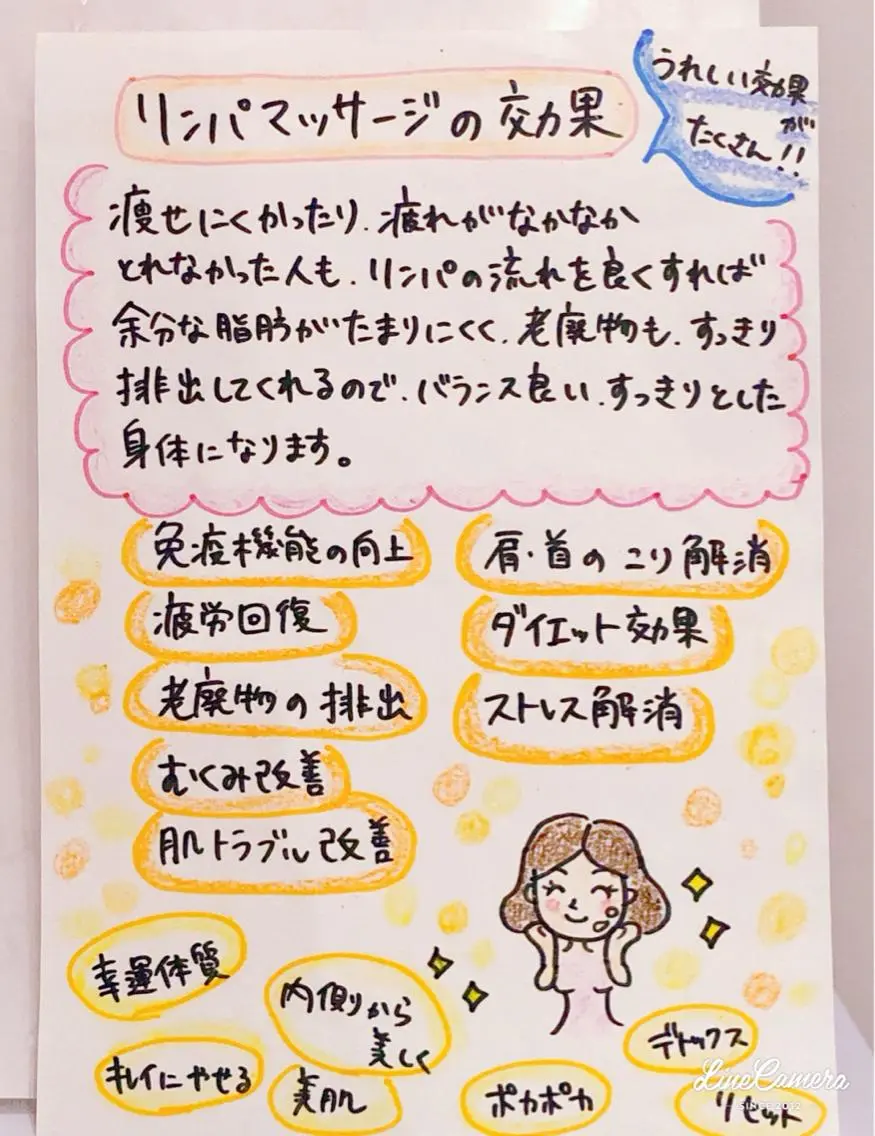 リンパマッサージの効果
うれしい効果
が
たくさん!!
痩せにくかったり、疲れがなかなか
とれなかった人も、リンパの流れを良くすれば
余分な脂肪がたまりにくく、老廃物も、すっきり
排出してくれるので、バランス良い、すっきりとした
身体になります。
免疫機能の向上
肩・首のこり解消
疲労回復
ダイエット効果
老廃物の排出
ストレス解消
むくみ改善
肌トラブル改善
幸運体質
内側から
美しく
デトックス
キレイにやせる
美肌
ポカポカ
リセット
LineCamera
SINCE 2012